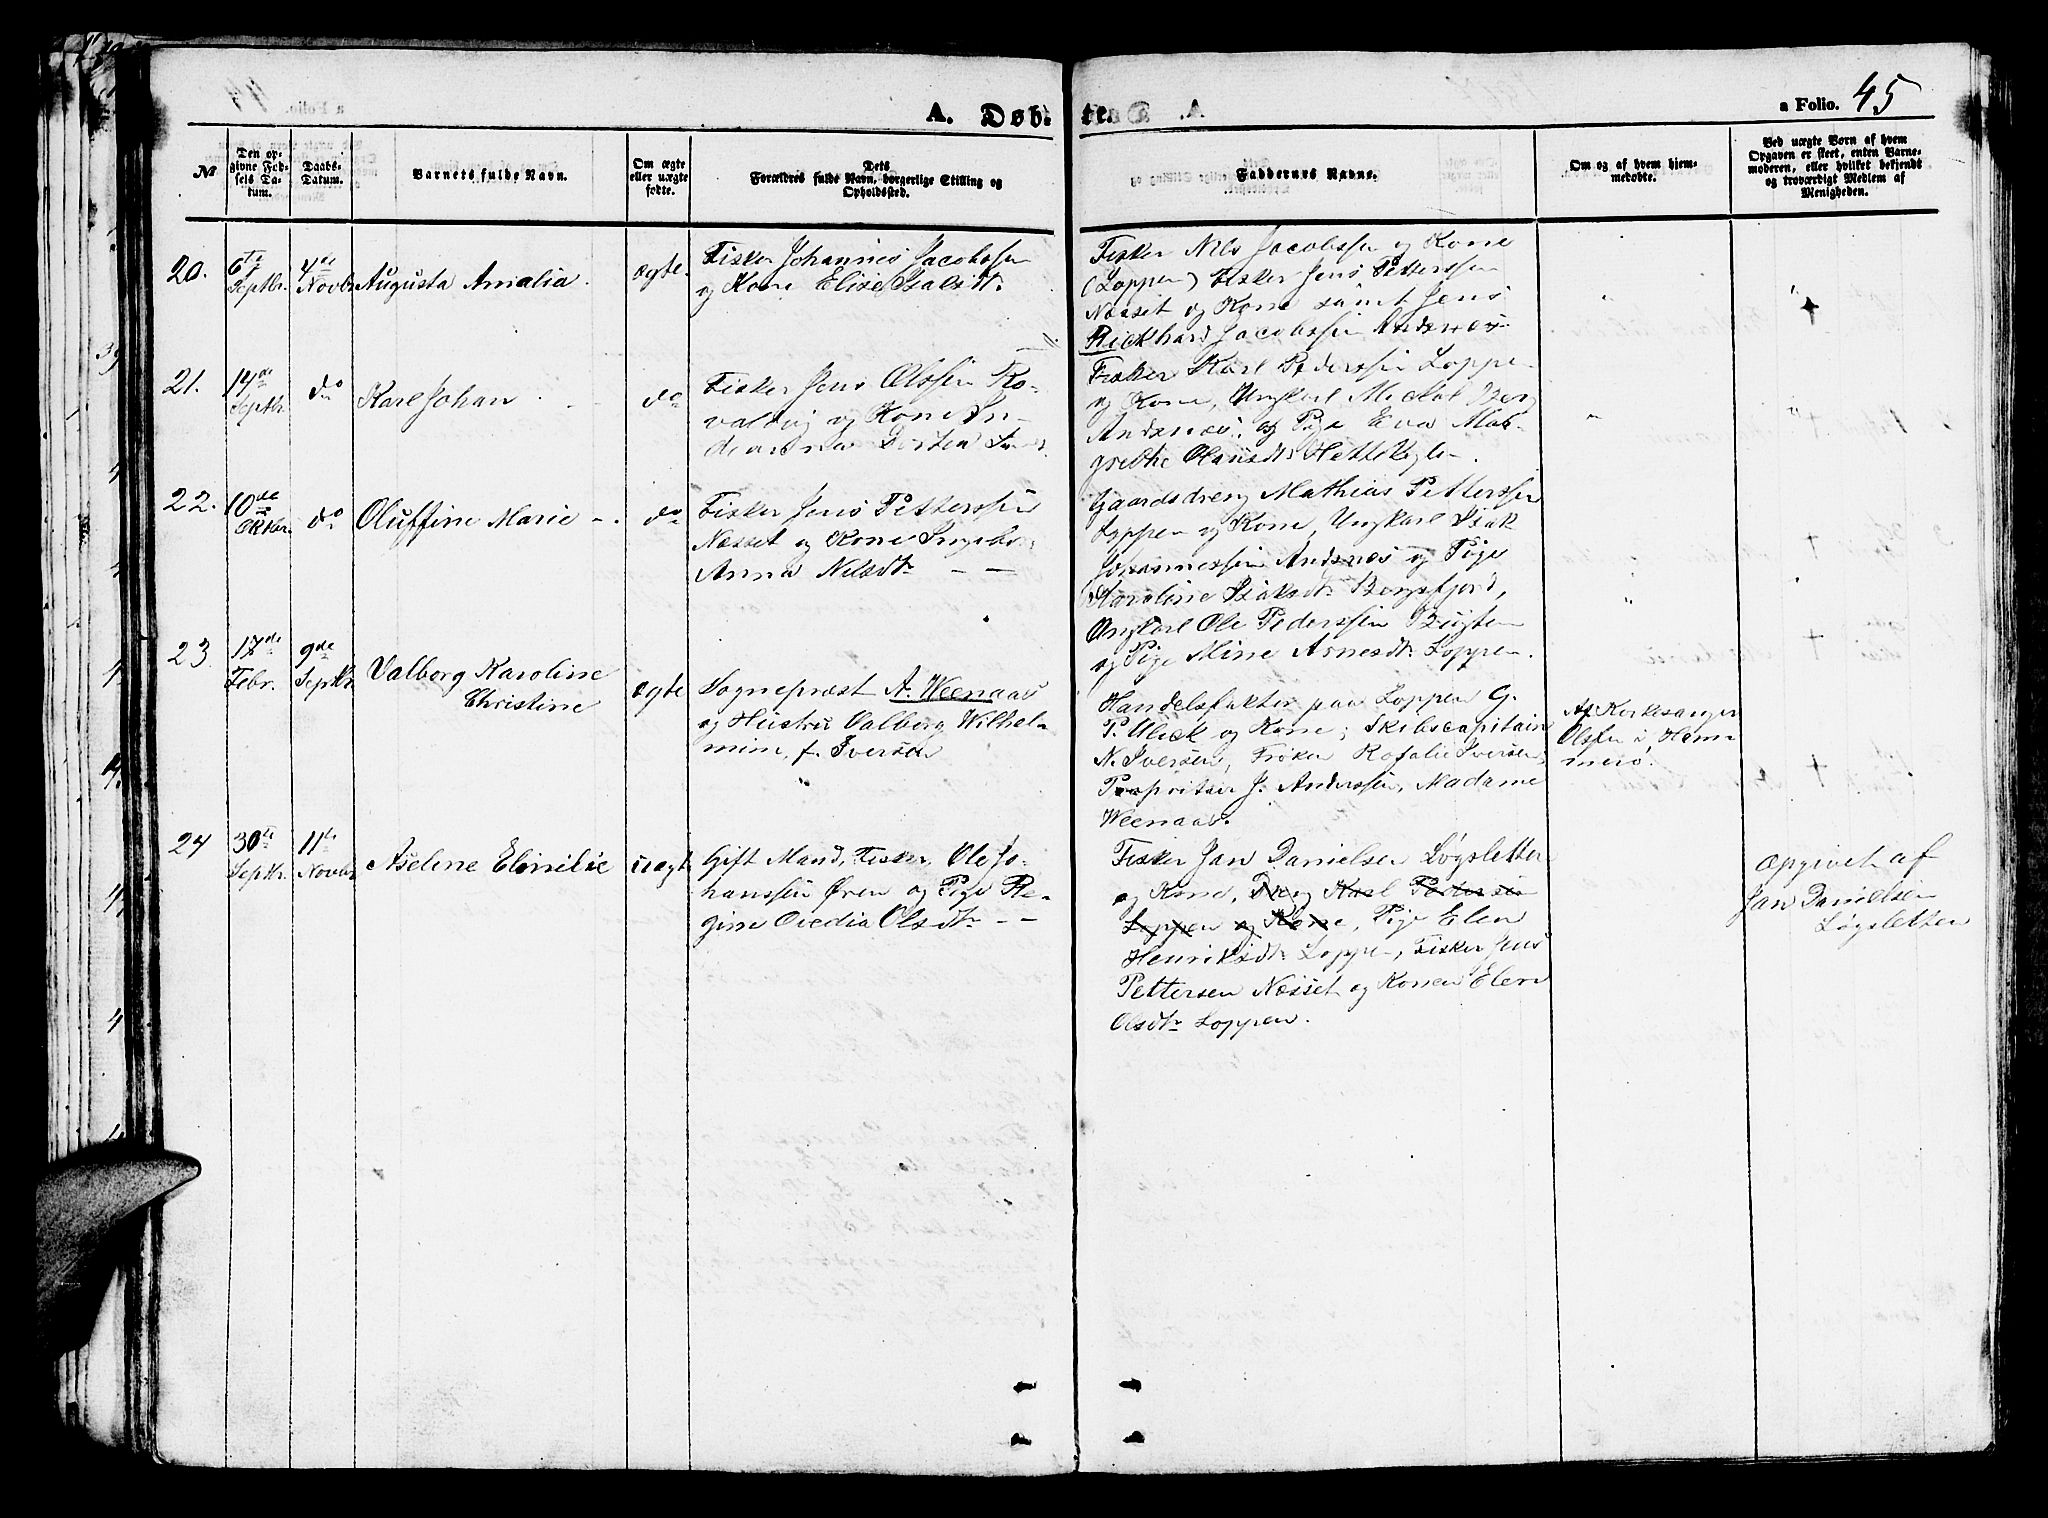 A. Døbte.
a Folio. 45
№
Den opgivne Fødsels Datum.
Daabs-Datum.
Barnets fulde Navn.
Om ægte eller uægte fødte.
Dets Forældres fulde Navn, borgerlige Stilling og Opholdssted.
Faddernes Navne.
Om og af hvem hjemmedøbte.
Ved uægte Børn af hvem Opgaven er skeet, enten Barnemoderen, eller hvilket bekjendt og troværdigt Medlem af Menigheden.
20.
6te Septbr.
4de Novbr
Augusta Amalia.
ægte.
Fisker Johannes Jacobssen
og Kone Elise Isaksdtr
Fisker Nils Jacobssen og Kone
(Loppen) Fisker Jens Petterssen
Næsset og Kone samt Jens
Rickhard Jacobssen Andsnæs
21.
14de Septbr.
do
Karl Johan
do
Fisker Jens Olssen
og Kone
Fisker Karl Pederssen Loppen
og Kone, Ungkarl Mickal Berg
Andsnæs. og Pige Eva Mar-
grethe Olausdtr
22.
10de Oktbr.
do
Oluffine Marie
do
Fisker Jens Petterssen
Næsset og Kone Ingebor
Anna Nilsdtr
Gaardsdreng Mathias Petterssen
Loppen og Kone, Ungkarl Isak
Johannessen Andsnæs og Pige
Karoline Isaksdtr Bergsfjord,
Ungkarl Ole Pederssen Bugten
og Pige Mine Arnesdtr Loppen.
23
17de Febr.
9de Septbr
Valborg Karoline
Christine
ægte
Sogneprest A. Weenaas
og Hustru Valborg Wilhel-
mine, f. Iversen
Handelsfaktor paa Loppen G.
P. Ulick og Kone; Skibscapitain
N. Iversen, Frøken Rosalie Iversen,
Propritær J. Anderssen, Madame
Weenaas.
Af Kirkesanger
Olssen i Ham-
merø.
24
30te Septbr.
11te Novbr
Aselene Elmilie
uægt
Gift Mand, Fisker Ole Jo-
hanssen Øren og Pige Re-
gine Olsdtr
Fisker Jan Danielsen Løgsletten
og Kone, Dreng Karl Pederssen
Loppen og Kone, Pige Elen
Henriksdtr Loppen, Fisker Jens
Pettersen Næsset og Konen Elen
Olsdtr Loppen.
Opgivet af
Jan Danielsen
Løgsletten